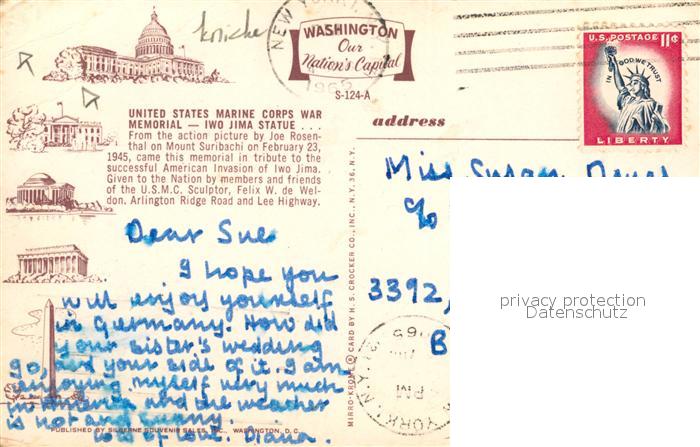 koniche
NEW YORK
1965
WASHINGTON
Our
Nation's Capital
S-124-A
U.S. POSTAGE 11¢
IN GOD WE TRUST
LIBERTY
UNITED STATES MARINE CORPS WAR
MEMORIAL — IWO JIMA STATUE . . .
From the action picture by Joe Rosen-
thal on Mount Suribachi on February 23,
1945, came this memorial in tribute to the
successful American Invasion of Iwo Jima.
Given to the Nation by members and friends
of the U.S.M.C. Sculptor, Felix W. de Wel-
don. Arlington Ridge Road and Lee Highway.
address
Miss Susan
c/o
3392,
B
privacy protection
Datenschutz
Dear Sue
I hope you
will enjoy yourself
in Germany. How did
your sister's wedding
go, and your side of it. I am
enjoying myself very much
in America and the weather
is not and sunny.
Lots of love. Diana.
MIRRO-KROME ® CARD BY H. S. CROCKER CO., INC., N.Y. 36, N.Y.
PM
YORK, N.Y.
PUBLISHED BY SILBERNE SOUVENIR SALES, INC., WASHINGTON, D. C.